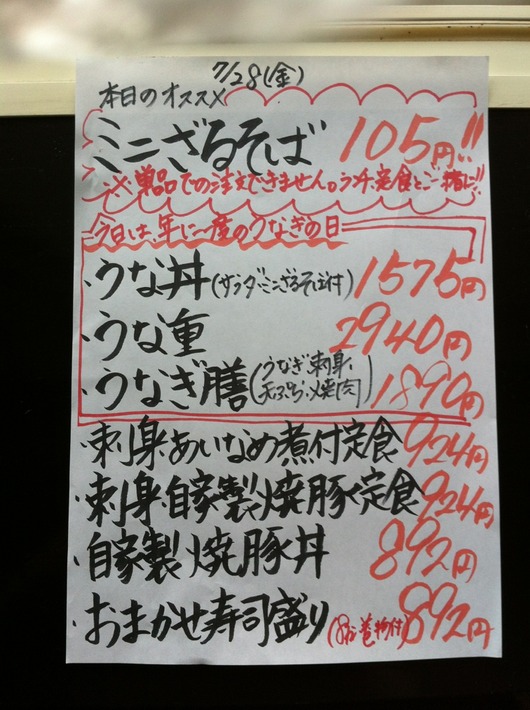 7/28(金)
本日のオススメ
ミニざるそば 105円!!
※単品での注文できません。ランチ、定食とご一緒に!!
今日は、年に一度のうなぎの日
・うな丼(サラダ・ミニざるそば付) 1575円
・うな重 2940円
・うなぎ膳(うなぎ、刺身、天ぷら、焼肉) 1890円
・刺身、あいなめ煮付定食 924円
・刺身、自家製焼豚定食 924円
・自家製焼豚丼 892円
・おまかせ寿司盛り(8カン巻物付) 892円